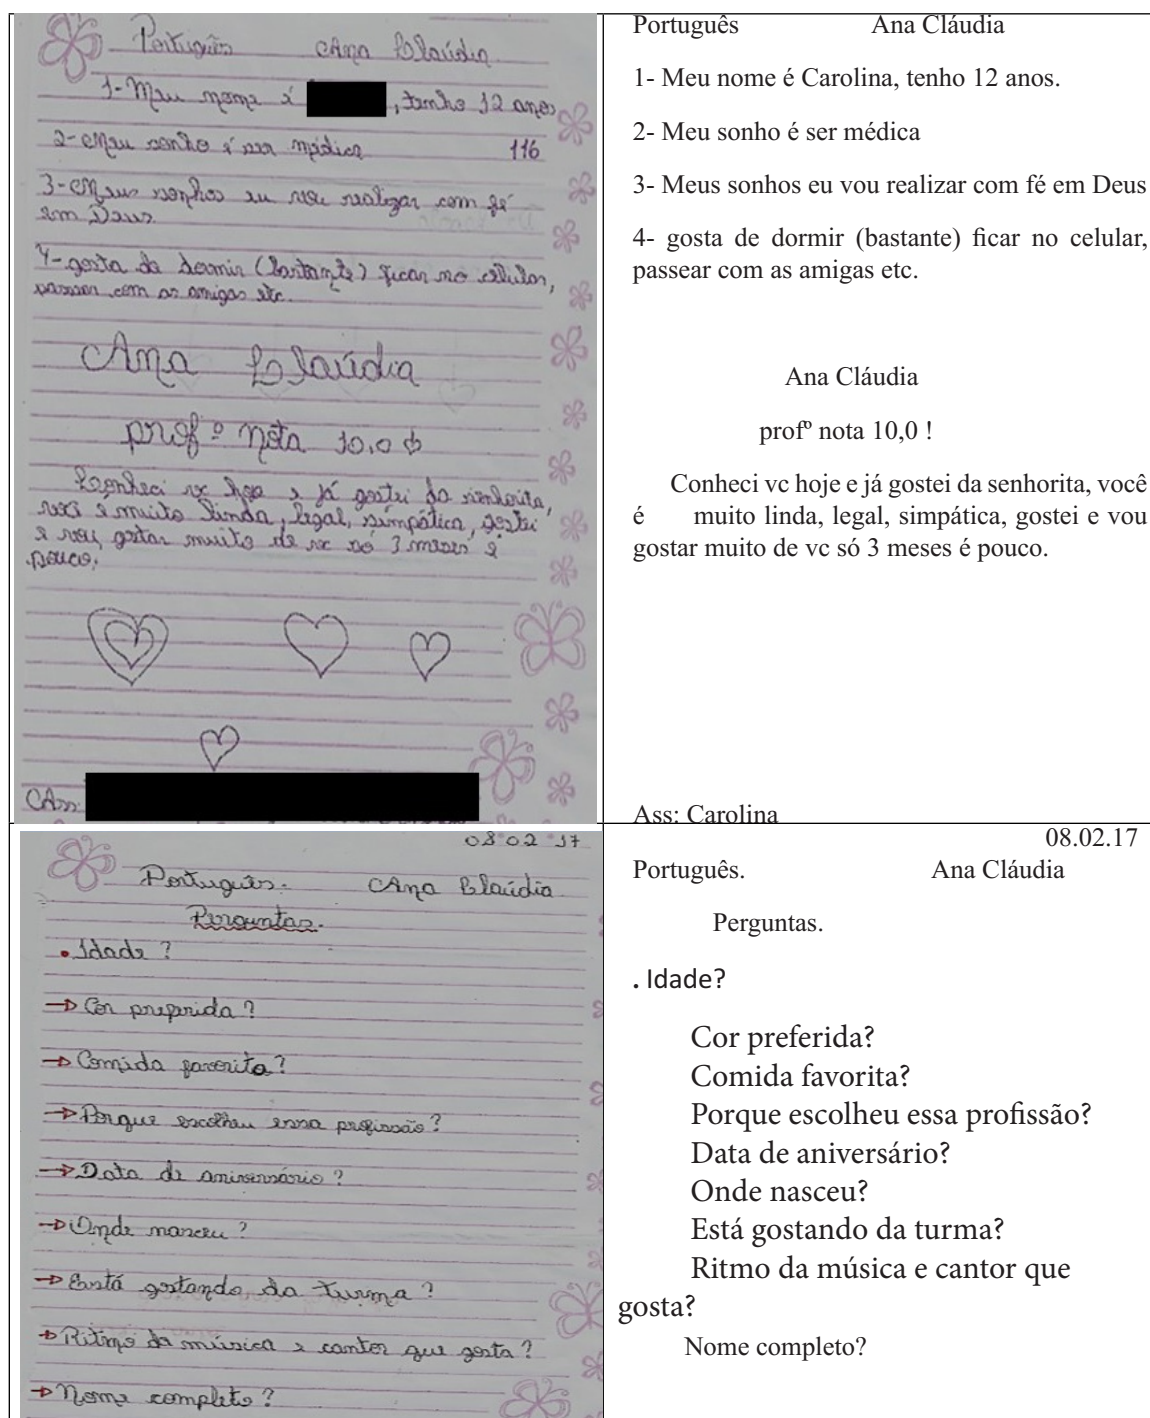 Português Ana Claúdia
1- Meu nome é , tenho 12 anos
2- Meu sonho é ser médica 116
3- Meus sonhos eu vou realizar com fé
em Deus
4- gosta de dormir (bastante) ficar no celular,
passear com as amigas etc.
Ana Claúdia
profº nota 10,0
Conheci vc hoje e já gostei da senhorita,
você é muito linda, legal, simpática, gostei
e vou gostar muito de vc só 3 meses é
pouco.
Ass:
Português Ana Cláudia
1- Meu nome é Carolina, tenho 12 anos.
2- Meu sonho é ser médica
3- Meus sonhos eu vou realizar com fé em Deus
4- gosta de dormir (bastante) ficar no celular,
passear com as amigas etc.
Ana Cláudia
profº nota 10,0 !
Conheci vc hoje e já gostei da senhorita, você
é muito linda, legal, simpática, gostei e vou
gostar muito de vc só 3 meses é pouco.
Ass: Carolina
08 02 17
Português. Ana Claúdia
Perguntas.
. Idade ?
→ Cor preferida ?
→ Comida favorita ?
→ Porque escolheu essa profissão ?
→ Data de aniversário ?
→ Onde nasceu ?
→ Está gostando da turma ?
→ Ritmo da música e cantor que gosta ?
→ Nome completo ?
08.02.17
Português. Ana Cláudia
Perguntas.
. Idade?
Cor preferida?
Comida favorita?
Porque escolheu essa profissão?
Data de aniversário?
Onde nasceu?
Está gostando da turma?
Ritmo da música e cantor que
gosta?
Nome completo?